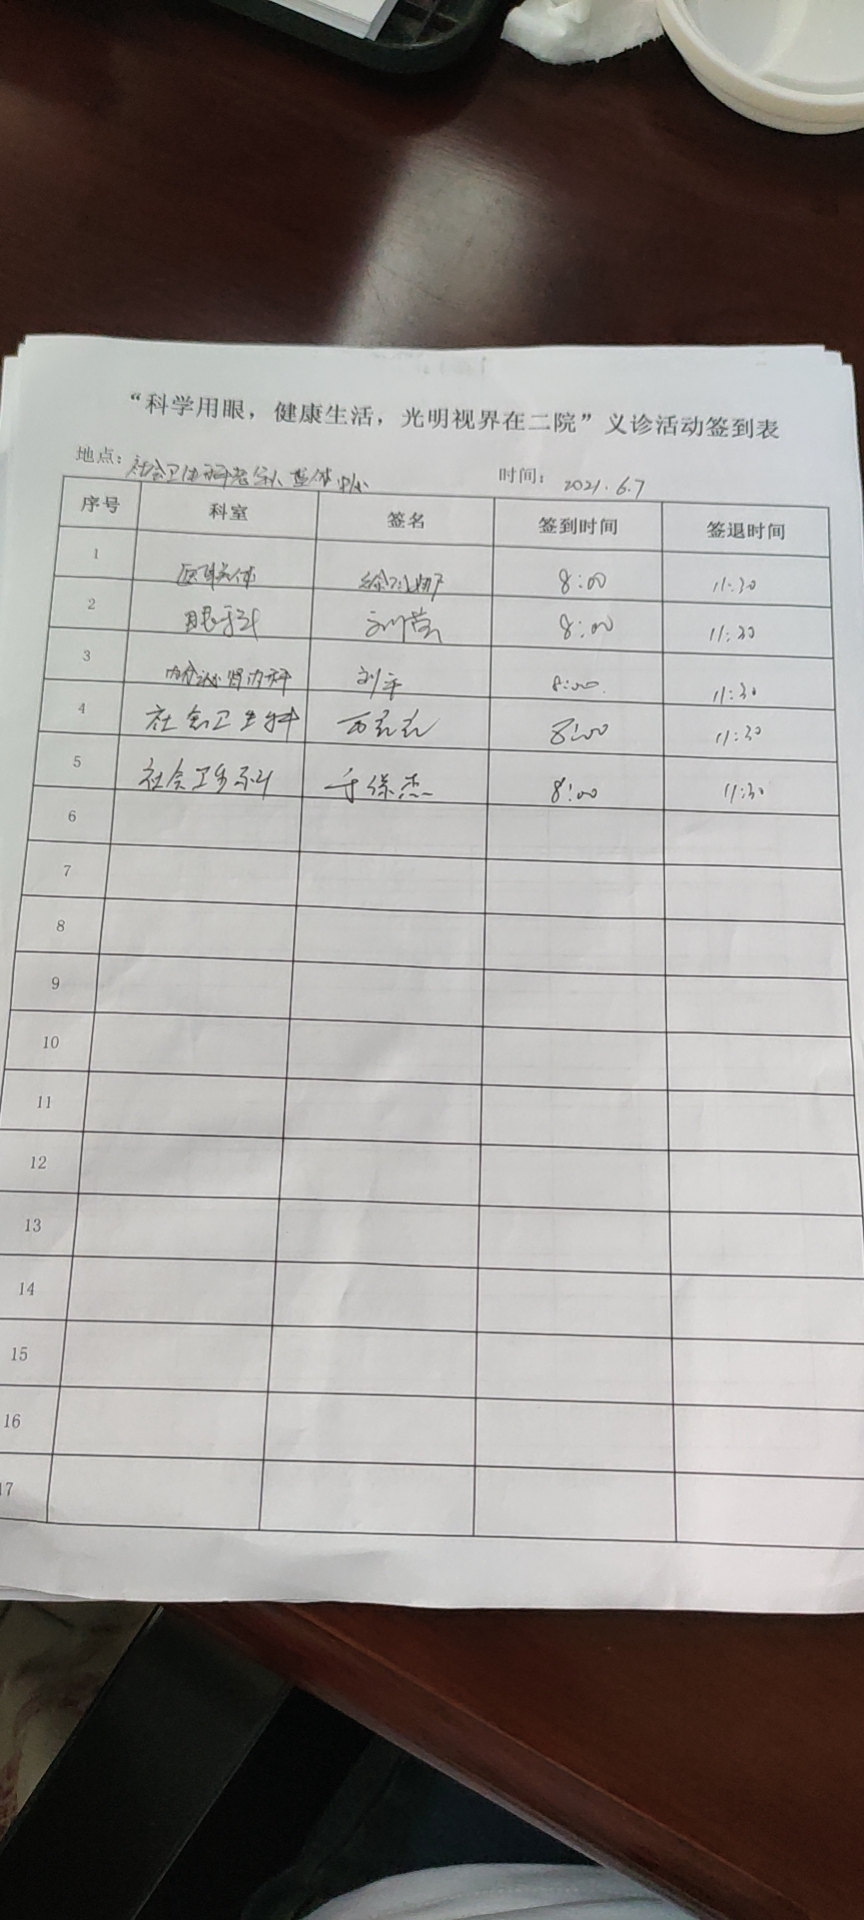 “科学用眼，健康生活，光明视界在二院”义诊活动签到表
地点：社会卫生科 时间：2021.6.7
序号 科室 签名 签到时间 签退时间
1 8:00 11:30
2 眼科 刘莹 8:00 11:30
3 内分泌肾内科 刘平 8:00 11:30
4 社会卫生科 8:00 11:30
5 社会卫生科 于保杰 8:00 11:30
6
7
8
9
10
11
12
13
14
15
16
17